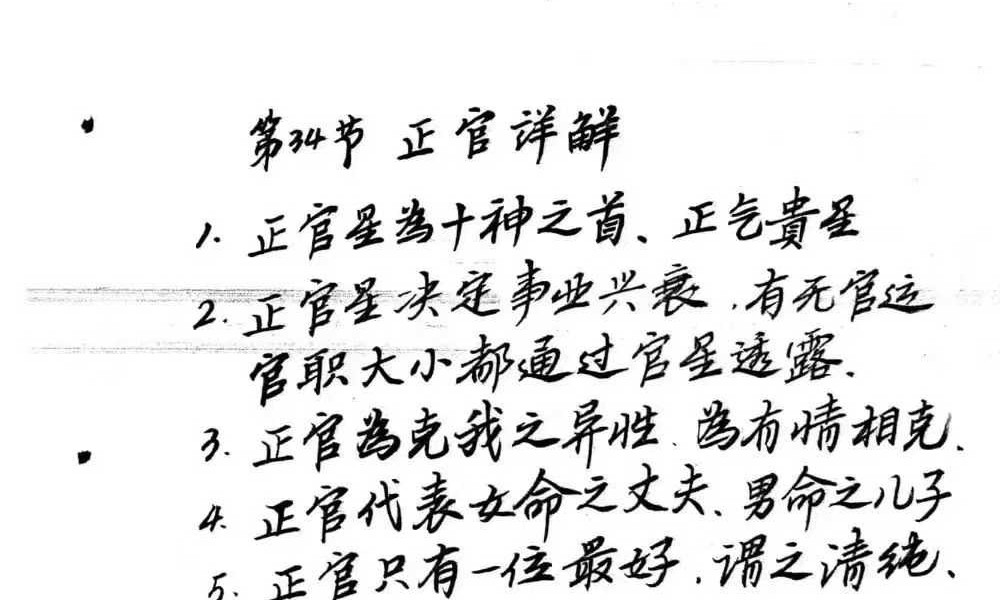 第34节 正官详解
1. 正官星為十神之首、正气貴星
2. 正官星决定事业兴衰,有无官运
官职大小都通过官星透露.
3. 正官為克我之异性、為有情相克.
4. 正官代表女命之丈夫、男命之儿子
5. 正官只有一位最好,谓之清纯、